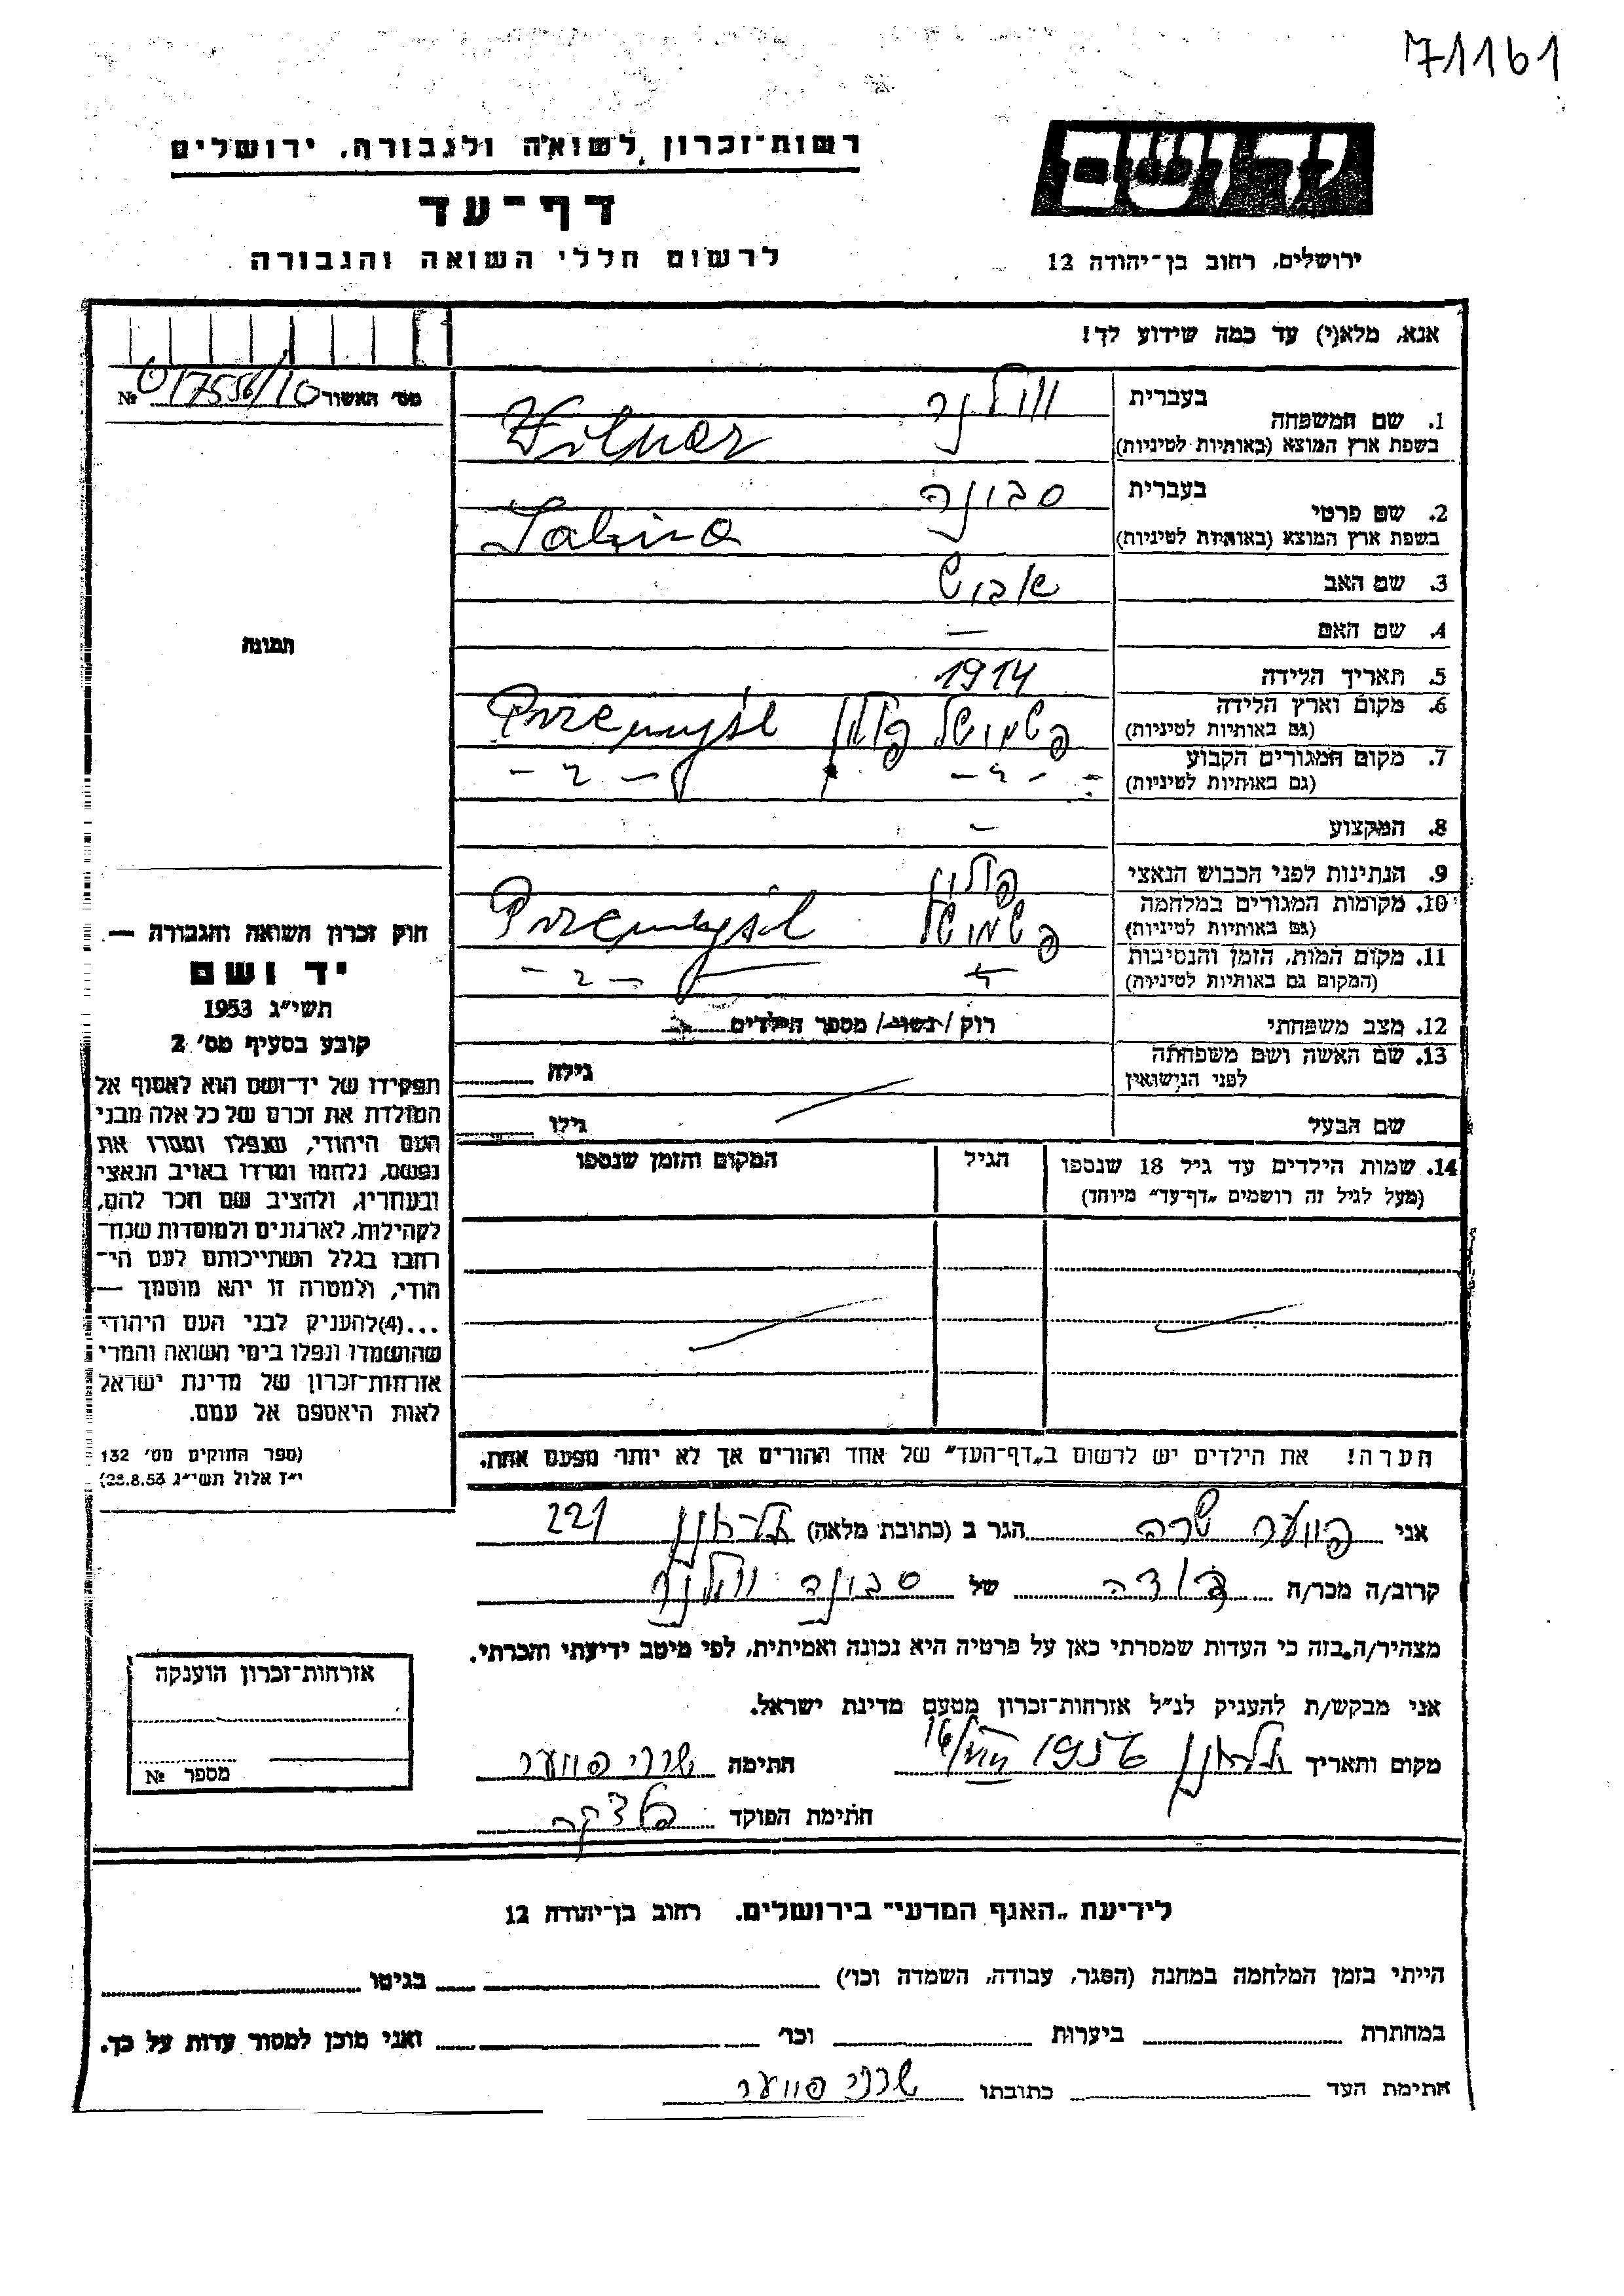 71161
רשות־זכרון לשואה ולגבורה, ירושלים
דף־עד
לרשום חללי השואה והגבורה
יד ושם
ירושלים, רחוב בן־יהודה 12
אנא, מלא(י) עד כמה שידוע לך!
מס׳ האשור № 017556/10
תמונה
1. שם המשפחה בעברית ווילנר
בשפת ארץ המוצא (באותיות לטיניות) Wilner
2. שם פרטי בעברית סבינה
בשפת ארץ המוצא (באותיות לטיניות) Sabina
3. שם האב אבוש
4. שם האם —
5. תאריך הלידה 1914
6. מקום וארץ הלידה פשמושל פולין Przemyśl
(גם באותיות לטיניות)
7. מקום המגורים הקבוע
(גם באותיות לטיניות)
8. המקצוע —
9. הנתינות לפני הכבוש הנאצי פולין
10. מקומות המגורים במלחמה פשמושל Przemyśl
(גם באותיות לטיניות)
11. מקום המות, הזמן והנסיבות
(המקום גם באותיות לטיניות)
12. מצב משפחתי רוק / נשוי / מספר הילדים
13. שם האשה ושם משפחתה
לפני הנישואין גילה
שם הבעל גילו
14. שמות הילדים עד גיל 18 שנספו הגיל המקום והזמן שנספו
(מעל לגיל זה רושמים „דף־עד” מיוחד)
הערה! את הילדים יש לרשום ב„דף־העד” של אחד ההורים אך לא יותר מפעם אחת.
חוק זכרון השואה והגבורה —
יד ושם
תשי״ג 1953
קובע בסעיף מס׳ 2
תפקידו של יד־ושם הוא לאסוף אל
המולדת את זכרם של כל אלה מבני
העם היהודי, שנפלו ומסרו את
נפשם, נלחמו ומרדו באויב הנאצי
ובעוזריו, ולהציב שם וזכר להם,
לקהילות, לארגונים ולמוסדות שנח־
רבו בגלל השתייכותם לעם הי־
הודי, ולמטרה זו יהא מוסמך —
...(4)להעניק לבני העם היהודי
שהושמדו ונפלו בימי השואה והמרי
אזרחות־זכרון של מדינת ישראל
לאות היאספם אל עמם.
(ספר החוקים מס׳ 132
י״ז אלול תשי״ג 28.8.53)
אני פווער שרה הגר ב (כתובת מלאה) 221
קרוב/ה מכר/ה דודה של סבינה ווילנר
מצהיר/ה בזה כי העדות שמסרתי כאן על פרטיה היא נכונה ואמיתית, לפי מיטב ידיעתי והכרתי.
אני מבקש/ת להעניק לנ״ל אזרחות־זכרון מטעם מדינת ישראל.
מקום ותאריך 16/VIII 1956 חתימה שרה פווער
חתימת הפוקד
אזרחות־זכרון הוענקה
מספר №
לידיעת „האגף המדעי” בירושלים, רחוב בן־יהודה 12
הייתי בזמן המלחמה במחנה (הסגר, עבודה, השמדה וכו׳) בגיטו
במחתרת ביערות וכו׳ ואני מוכן למסור עדות על כך.
חתימת העד כתובתו שרה פווער